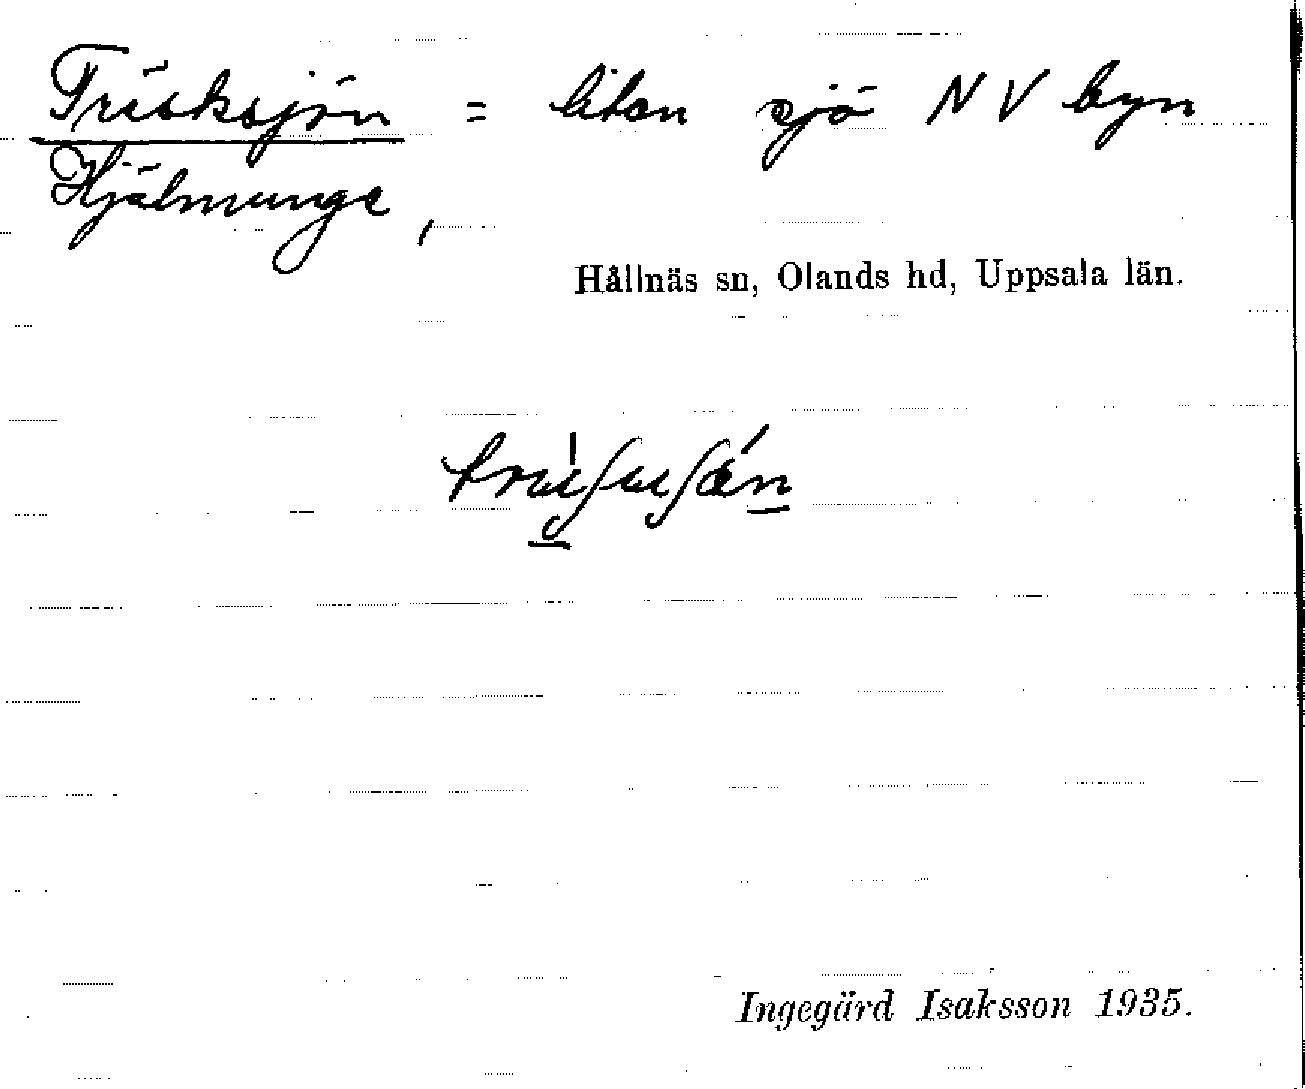 Träsksjön = liten sjö NV byn
Hjälmunge,
Hållnäs sn, Olands hd, Uppsala län.
Ingegärd Isaksson 1935.